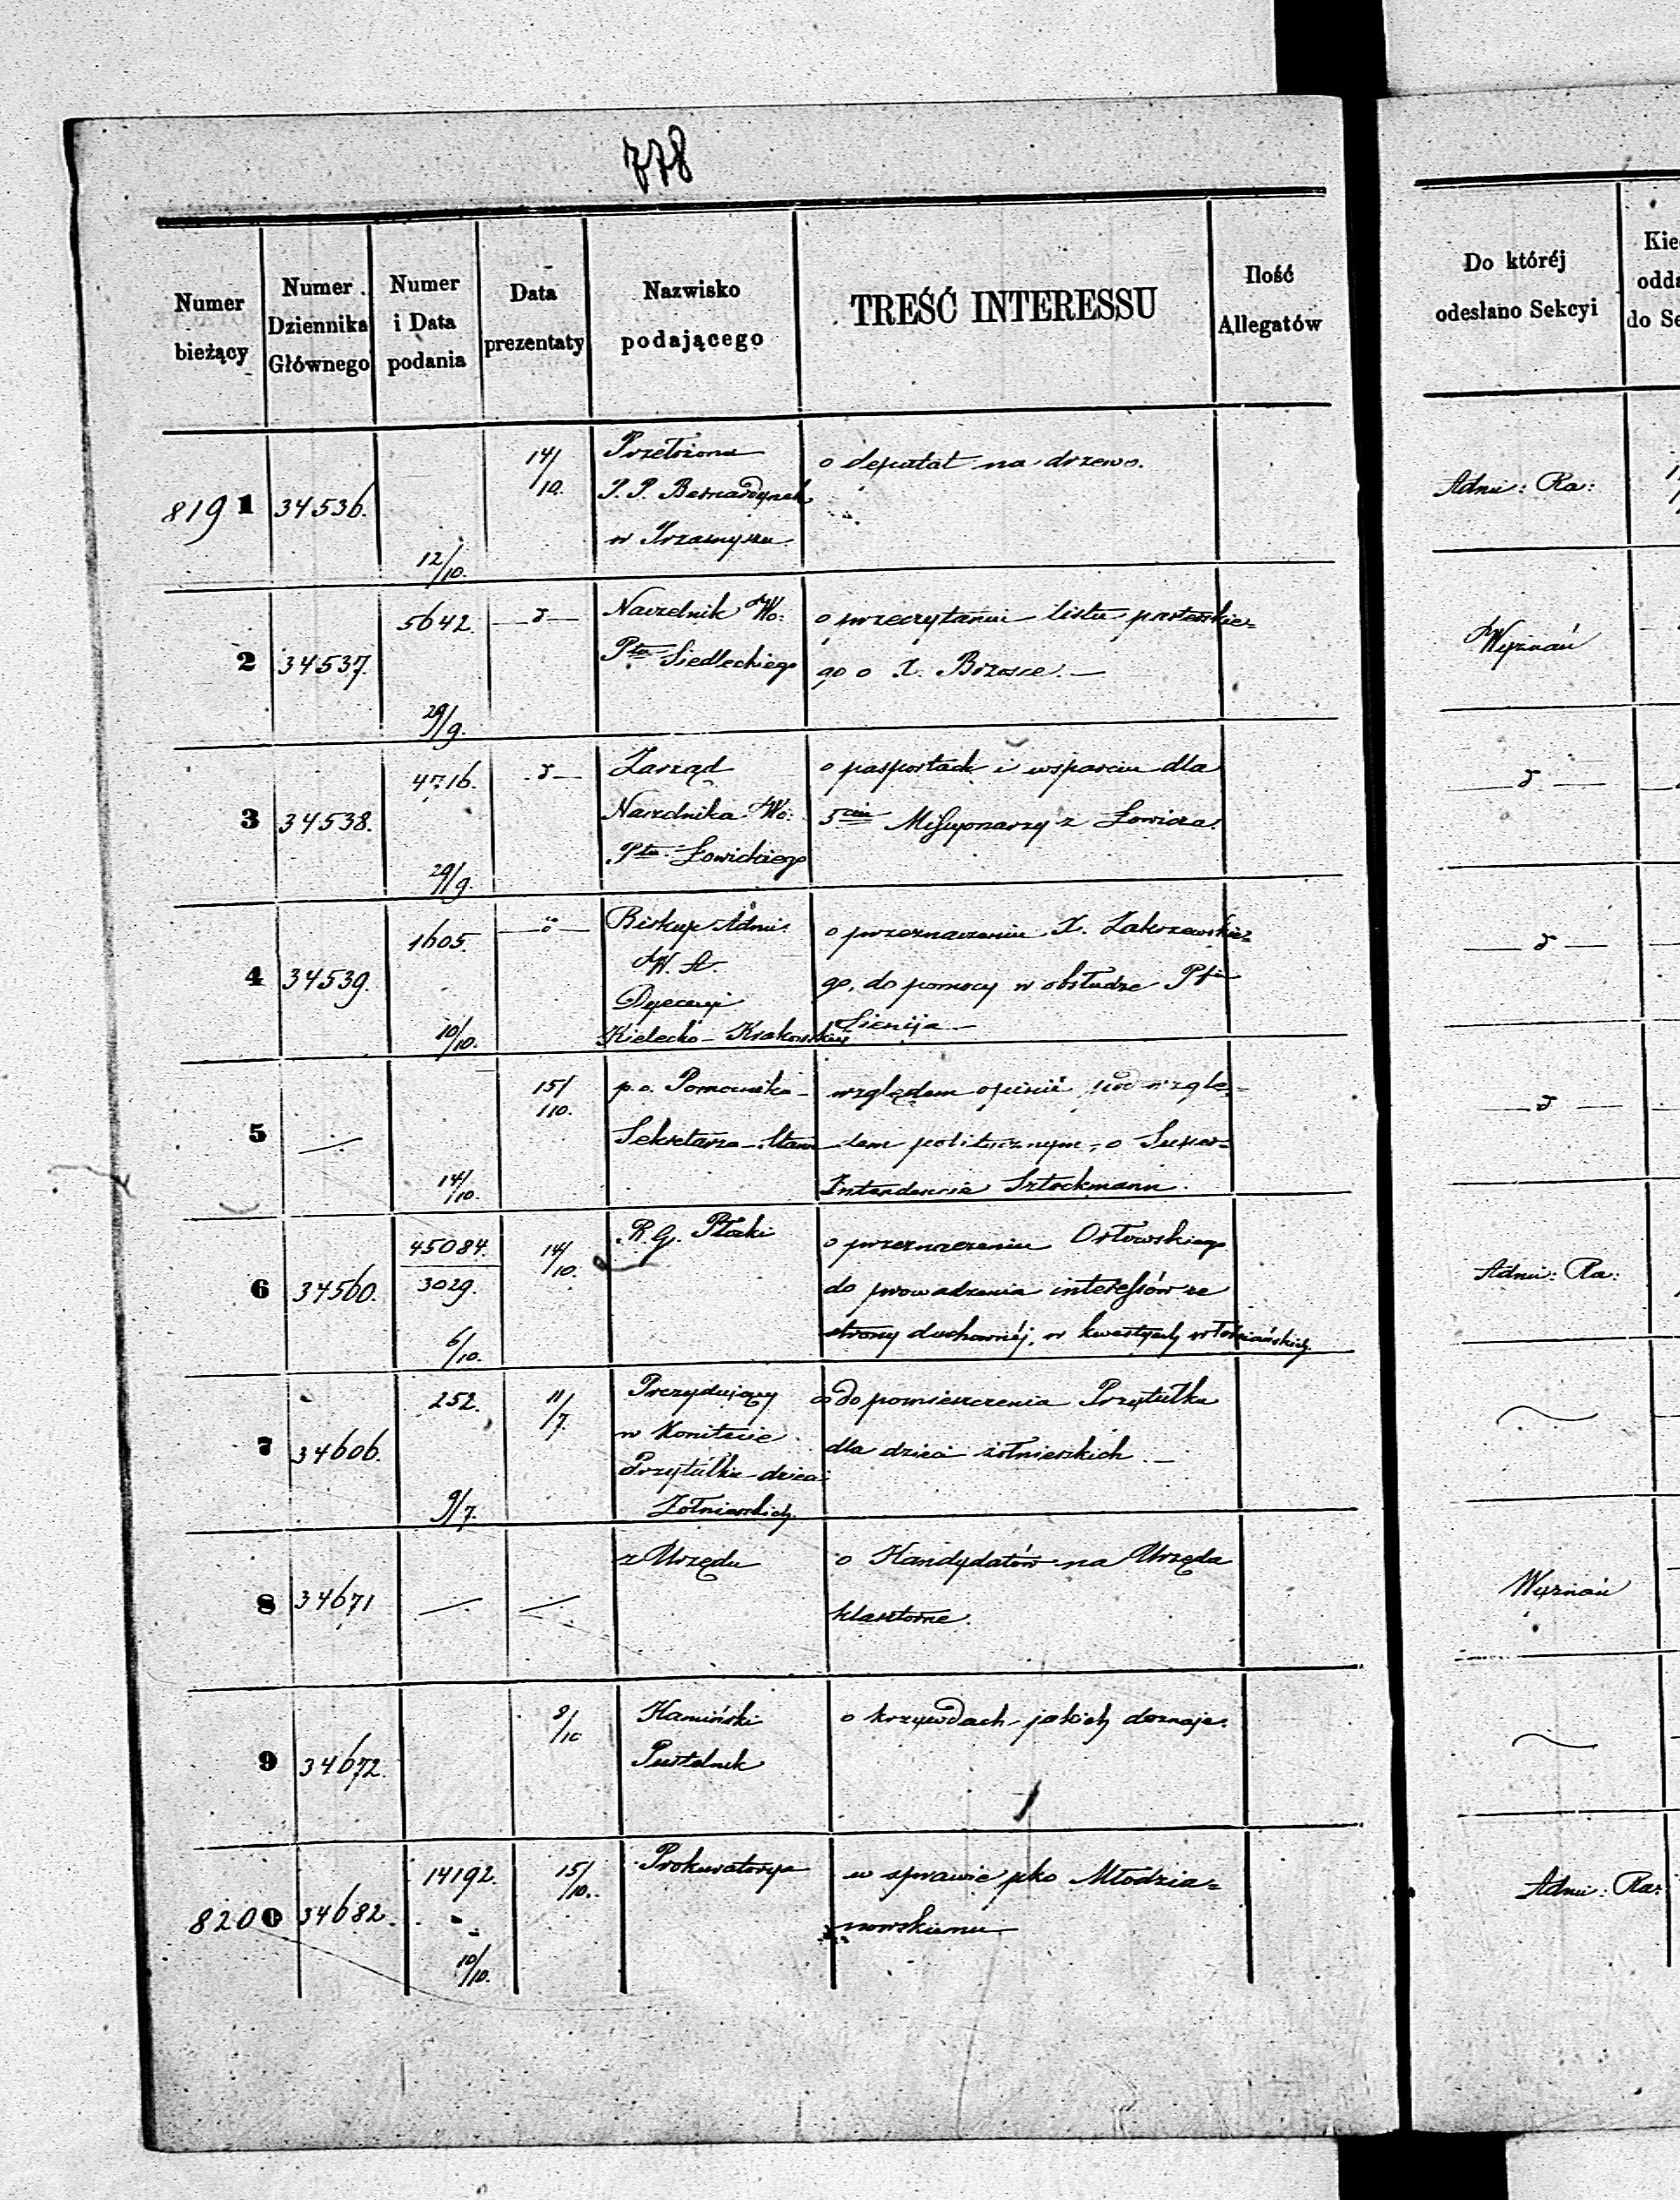 778
Numer bieżący
Numer Dziennika Głównego
Numer i Data podania
Data prezentaty
Nazwisko podającego
TREŚĆ INTERESSU
Ilość Allegatów
Do któréj odesłano Sekcyi
Kie
odda
do Se
8191
34536.
12/10.
14/10.
Przełożona
P. P. Bernardynek
w
o deputat na drzewo.
Admi: Ra:
2
34537.
5642.
29/9.
—d—
Naczelnik Wo:
Ptu Siedleckiego
o przeczytaniu listu pasterskie=
go o X. Brzosce.—
Wyznań
3
34538.
4716.
29/9.
—d—
Zarząd
Naczelnika Wo:
Ptu Łowickiego
o pasportach i wsparciu dla
5ciu Missyonarzy z Łowicza.
—d—
4
34539.
1605.
10/10.
—d—
Biskup Admi:
W. A.
Dyecezyi
Kielecko-Krakowskiej
o przeznaczeniu X. Zakrzewskie=
go, do pomocy w obsłudze Pfii
—d—
5
—
14/10.
15/10.
p. o. Pomocnika
Sekretarza Stanu
względem opinii pod wzglę=
dem politycznym, o Super=
Intendencie Sztockmann.
—d—
6
34560.
45084.
3029.
6/10.
14/10.
R. G. Płocki
o przeznaczeniu Orłowskiego
do prowadzenia interessów ze
strony duchownéj, w kwestyach włościańskich.
Admi: Ra:
7
34606.
252.
9/7.
11/7.
Prezydujący
w Komitecie
Przytułku dzieci
Żołnierskich.
co do pomieszczenia Przytułku
dla dzieci żołnierskich.—
8
34671
z Urzędu
o Kandydatów na Urzęda
klasztorne.
Wyznań
9
34672.
8/10
Kamiński
Pustelnik
o krzywdach jakich doznaje.
8200
34682.
14192.
10/10.
15/10.
Prokuratorya
w sprawie pko Młodzia=
nowskiemu
Admi: Ra: